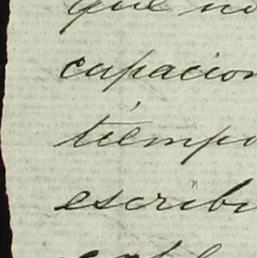 que no
cupacion
tiempo
escribi